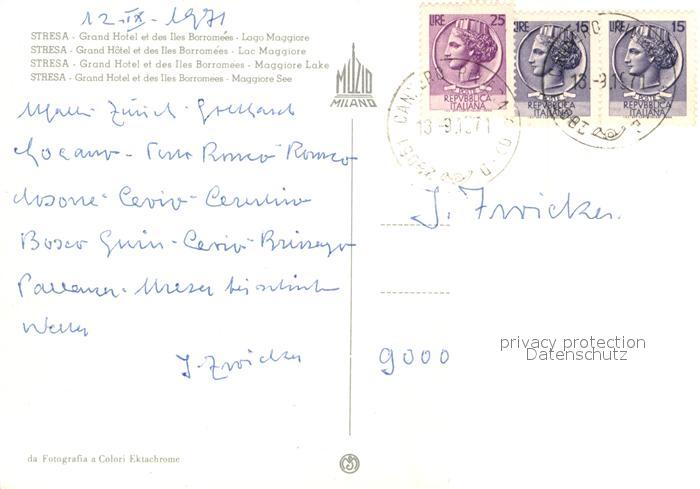 12-IX-1971
STRESA - Grand Hotel et des Iles Borromées - Lago Maggiore
STRESA - Grand Hôtel et des Iles Borromées - Lac Majeure
STRESA - Grand Hotel et des Iles Borromees - Maggiore Lake
STRESA - Grand Hotel et des Iles Borromees - Maggiore See
MUZIO
MILANO
LIRE 25
REPVBBLICA
ITALIANA
LIRE 15
REPVBBLICA
ITALIANA
LIRE 15
REPVBBLICA
ITALIANA
13-9.1971
13-9.1971
Zürich - Gotthard
Locarno - Ronco
Cevio - Cerentino
Bosco Gurin - Cevio - Brissago
Pallanza - Stresa bei schönstem
Wetter
J. Zwicker
J. Zwicker.
9000
privacy protection
Datenschutz
da Fotografia a Colori Ektachrome